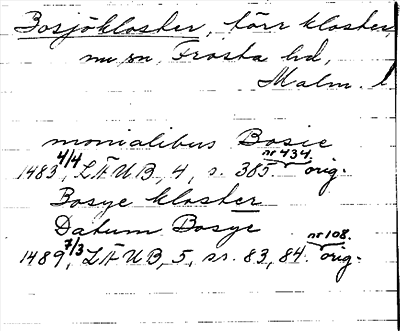 Bosjökloster, förr kloster,
nu sn, Frosta hd,
Malm. l
monialibus Bosie
1483 4/4, LÄUB, 4, s. 385 nr 434 orig.
Bosye kloster
Datum Bosye
1489 7/3, LÄUB, 5, ss. 83, 84. nr 108. orig.